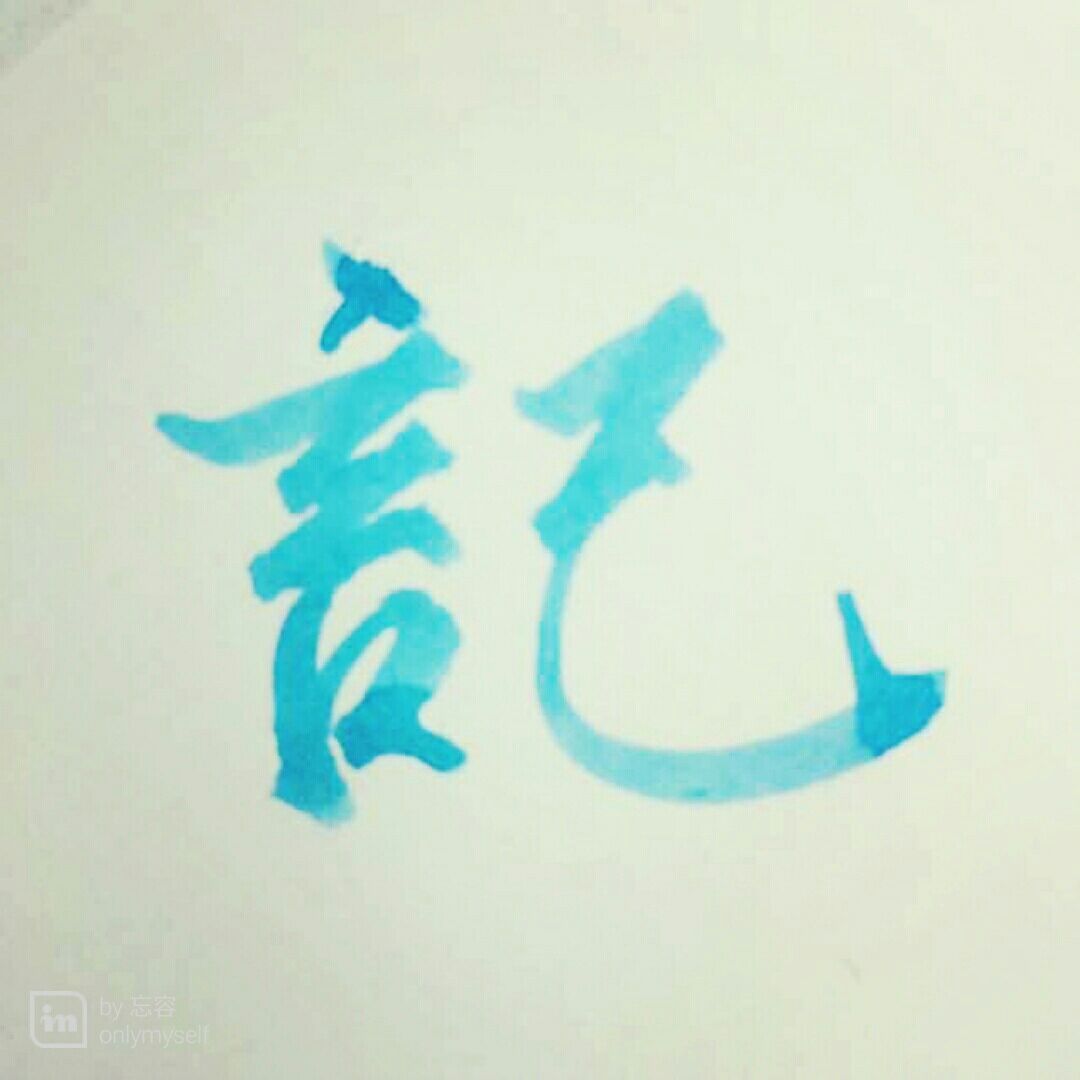 記
by 忘容
onlymyself